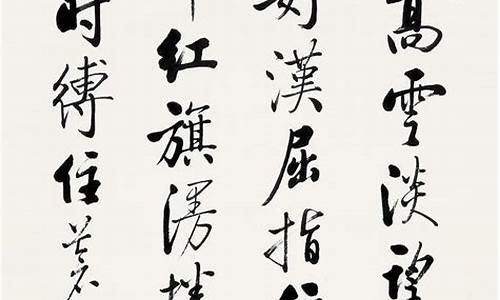 高雲淡望
好漢屈指行
紅旗漫捲
時縛住蒼